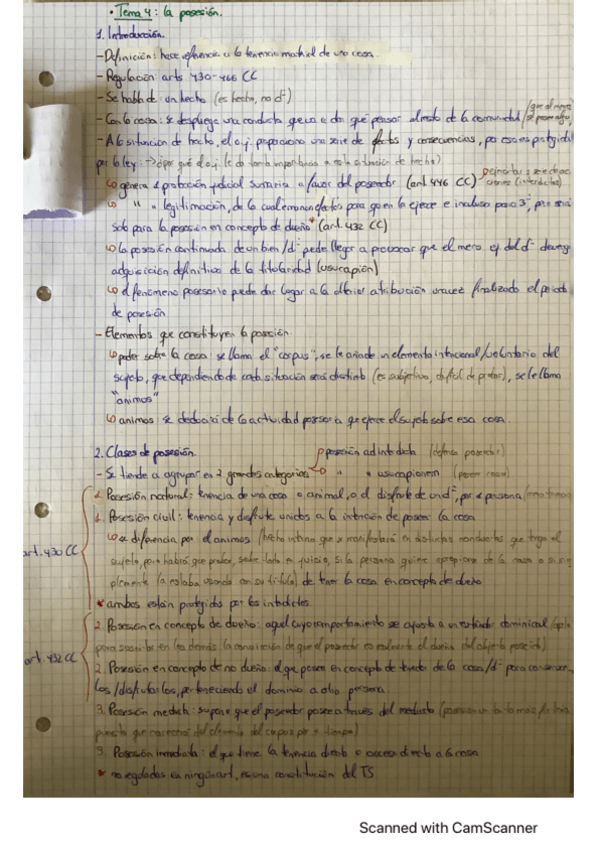 • Tema 4: la posesión.
1. Introducción.
- Definición: hace referencia a la tenencia material de una cosa.
- Regulación: arts 430-466 CC
- Se habla de un hecho (es hecho, no dº)
- Con la cosa: se despliega una conducta que da que pensar al resto de la comunidad
- A la situación de hecho, el o.j. proporciona una serie de efectos y consecuencias, por eso es protegida
por la ley: → (¿por qué el o.j. le da tanta importancia a esta situación de hecho?)
↳ genera 1 protección judicial sumaria a favor del poseedor (art 446 CC) (interdictos)
↳ " " legitimación, de la cual emanan efectos para quien la ejerce e incluso para 3º, pero
solo para la posesión en concepto de dueño* (art. 432 CC)
↳ la posesión continuada de un bien/dº puede llegar a provocar que el mero ej del dº devenga
adquisición definitiva de la titularidad (usucapión)
↳ el fenómeno posesorio puede dar lugar a la ulterior atribución una vez finalizado el periodo
de posesión
- Elementos que constituyen la posesión
↳ poder sobre la cosa se llama el "corpus", se le añade un elemento intencional/voluntario del
sujeto, que dependiendo de cada situación será distinto (es subjetivo, difícil de probar), se le llama
"animos"
↳ animos: se deducirá de la actividad posesoria que ejerce el sujeto sobre esa cosa.
2. Clases de posesión.
posesión ad interdicta (defensa poseedor)
- Se tiende a agrupar en 2 grandes categorías " " usucapionem
art. 430 CC
1. Posesión natural: tenencia de una cosa o animal, o el disfrute de un dº, por 1 persona
1. Posesión civil: tenencia y disfrute unidos a la intención de poseer la cosa
↳ se diferencia por el animos (hecho interno que se manifestará en distintas conductas que traiga el
sujeto, pero habrá que probar, sobre todo en juicio, si la persona quiere apropiarse de la cosa o sim
plemente la estaba usando con su título) de tener la cosa en concepto de dueño
* ambos están protegidos por los interdictos
art. 432 CC
2. Posesión en concepto de dueño: aquel cuyo comportamiento se ajusta a un estándar dominical
para suscitar en los demás la convicción de que el poseedor es realmente el dueño del objeto poseído)
2. Posesión en concepto de no dueño: el que posee en concepto de tenedor de la cosa/dº para conservar
los/disfrutarlos, perteneciendo el dominio a otra persona
3. Posesión mediata: supone que el poseedor posee a través del mediato
3. Posesión inmediata: el que tiene la tenencia directa o acceso directo a la cosa
* no reguladas en ningún art, es una constitución del TS
Scanned with CamScanner